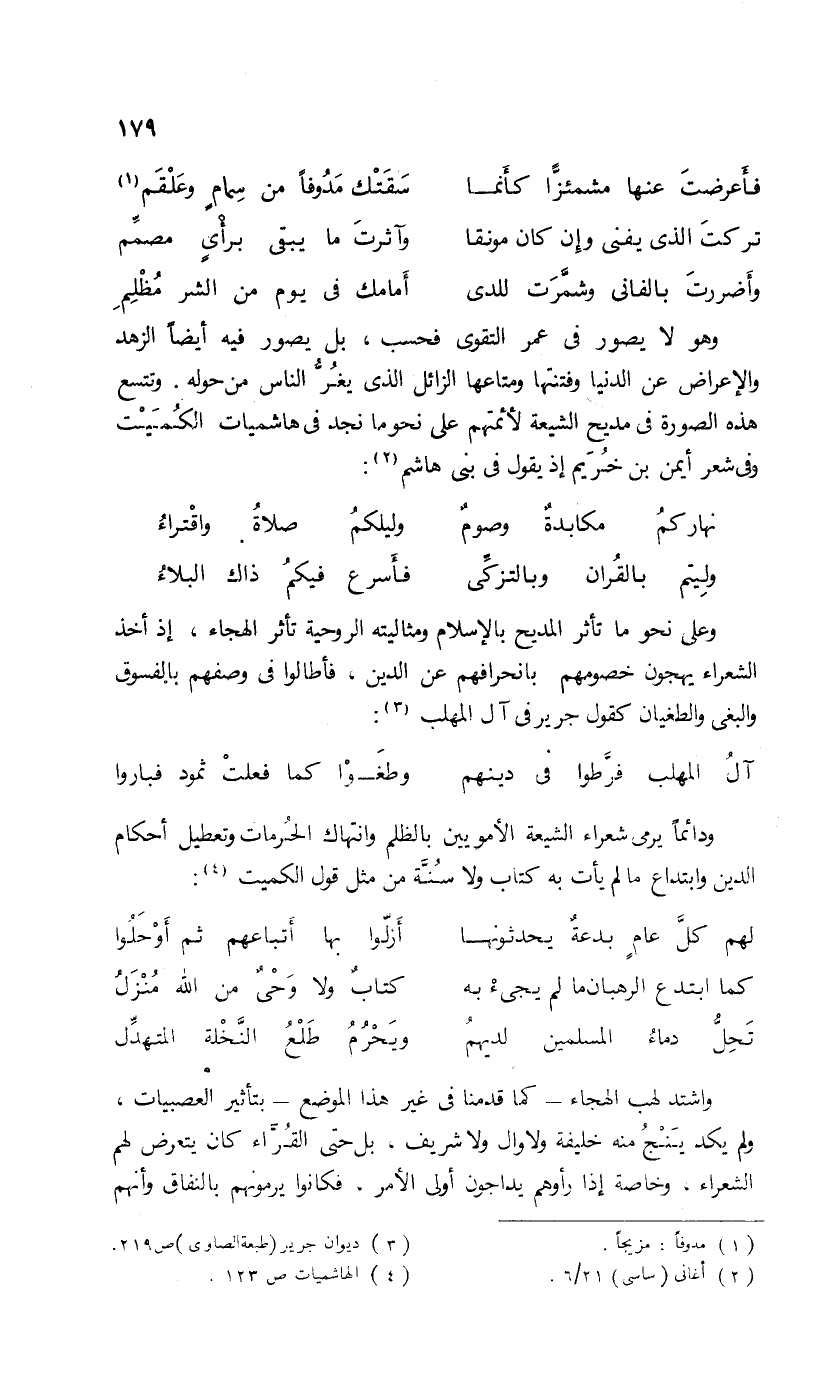 ١٧٩
فأَعرضتَ عنها مشمئزًّا كأَنمــا سَقَتْك مَدُوفاً من سِمامٍ وعَلْقَم (١)
تركتَ الذى يفنى وإن كان مونقا وآثرتَ ما يبقى برأْىٍ مصمِّم
وأَضررتَ بالفانى وشمَّرَت للدى أَمامك فى يوم من الشر مُظْلِمِ
وهو لا يصور فى عمر التقوى فحسب ، بل يصور فيه أيضاً الزهد
والإعراض عن الدنيا وفتنتها ومتاعها الزائل الذى يغُرُّ الناس من حوله . وتتسع
هذه الصورة فى مديح الشيعة لأئمتهم على نحو ما نجد فى هاشميات الكُمَيْت
وفى شعر أيمن بن خُرَيم إذ يقول فى بنى هاشم (٢) :
نهاركمُ مكابدةٌ وصومٌ وليلكمُ صلاةٌ واقْتراءُ
ولِيتم بالقُران وبالتزكِّى فأَسرع فيكمُ ذاك البلاءُ
وعلى نحو ما تأثر المديح بالإسلام ومثاليته الروحية تأثر الهجاء ، إذ أخذ
الشعراء يهجون خصومهم بانحرافهم عن الدين ، فأطالوا فى وصفهم بالفسوق
والبغى والطغيان كقول جرير فى آل المهلب (٣) :
آلُ المهلب فرَّطوا فى دينهم وطغَــوْا كما فعلتْ ثمود فباروا
ودائماً يرمى شعراء الشيعة الأمويين بالظلم وانتهاك الحُرمات وتعطيل أحكام
الدين وابتداع ما لم يأت به كتاب ولا سُنَّة من مثل قول الكميت (٤) :
لهم كلَّ عامٍ بدعةٌ يحدثونهـا أَزلّوا بها أَتباعهم ثم أَوْحَلُوا
كما ابتدع الرهبان ما لم يجىءْ به كتابٌ ولا وَحْىٌ من الله مُنْزَلُ
تَحِلُّ دماءُ المسلمين لديهمُ ويَحْرُمُ طَلْعُ النَّخْلة المتهدِّل
واشتد لهب الهجاء – كما قدمنا فى غير هذا الموضع – بتأثير العصبيات ،
ولم يكد يَنْجُ منه خليفة ولا وال ولا شريف ، بل حتى القُرَّاء كان يتعرض لهم
الشعراء ، وخاصة إذا رأوهم يداجون أولى الأمر . فكانوا يرمونهم بالنفاق وأنهم
( ١ ) مدوفاً : مزيجاً .
( ٢ ) أغانى ( ساسى ) ٦/٢١ .
( ٣ ) ديوان جرير ( طبعة الصاوى ) ص ٢١٩.
( ٤ ) الهاشميات ص ١٢٣ .